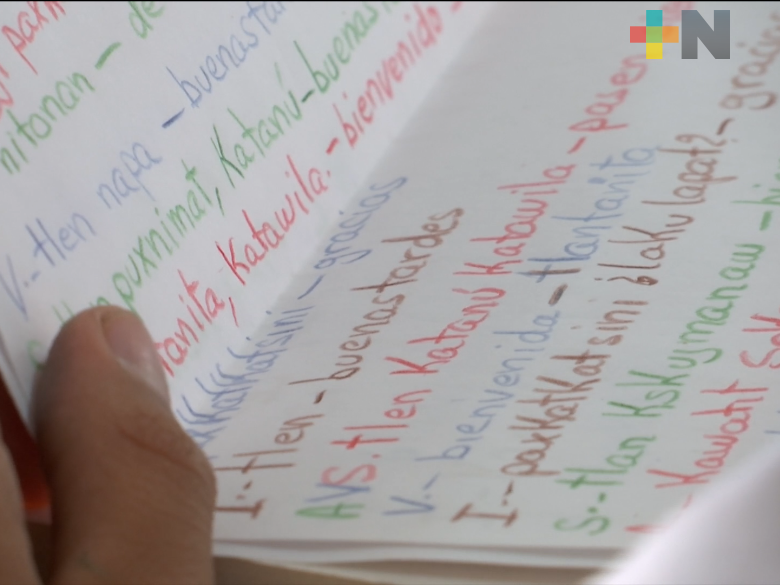 +N
nitonan - de
V.- tlen napa - buenastar
puxnimat, Katanú - buenas
tanita, Katawila. - bienvenido -
Katsini - gracias
I.- tlen - buenastardes
AVS. tlen Katanú Katawila - pasen
V.- bienvenida - tlantanita
I.- paxKatKatsini ¿laKu lapat? - gracias
S.- tlan KsKujmanaw - bi
- Kawanit SoK